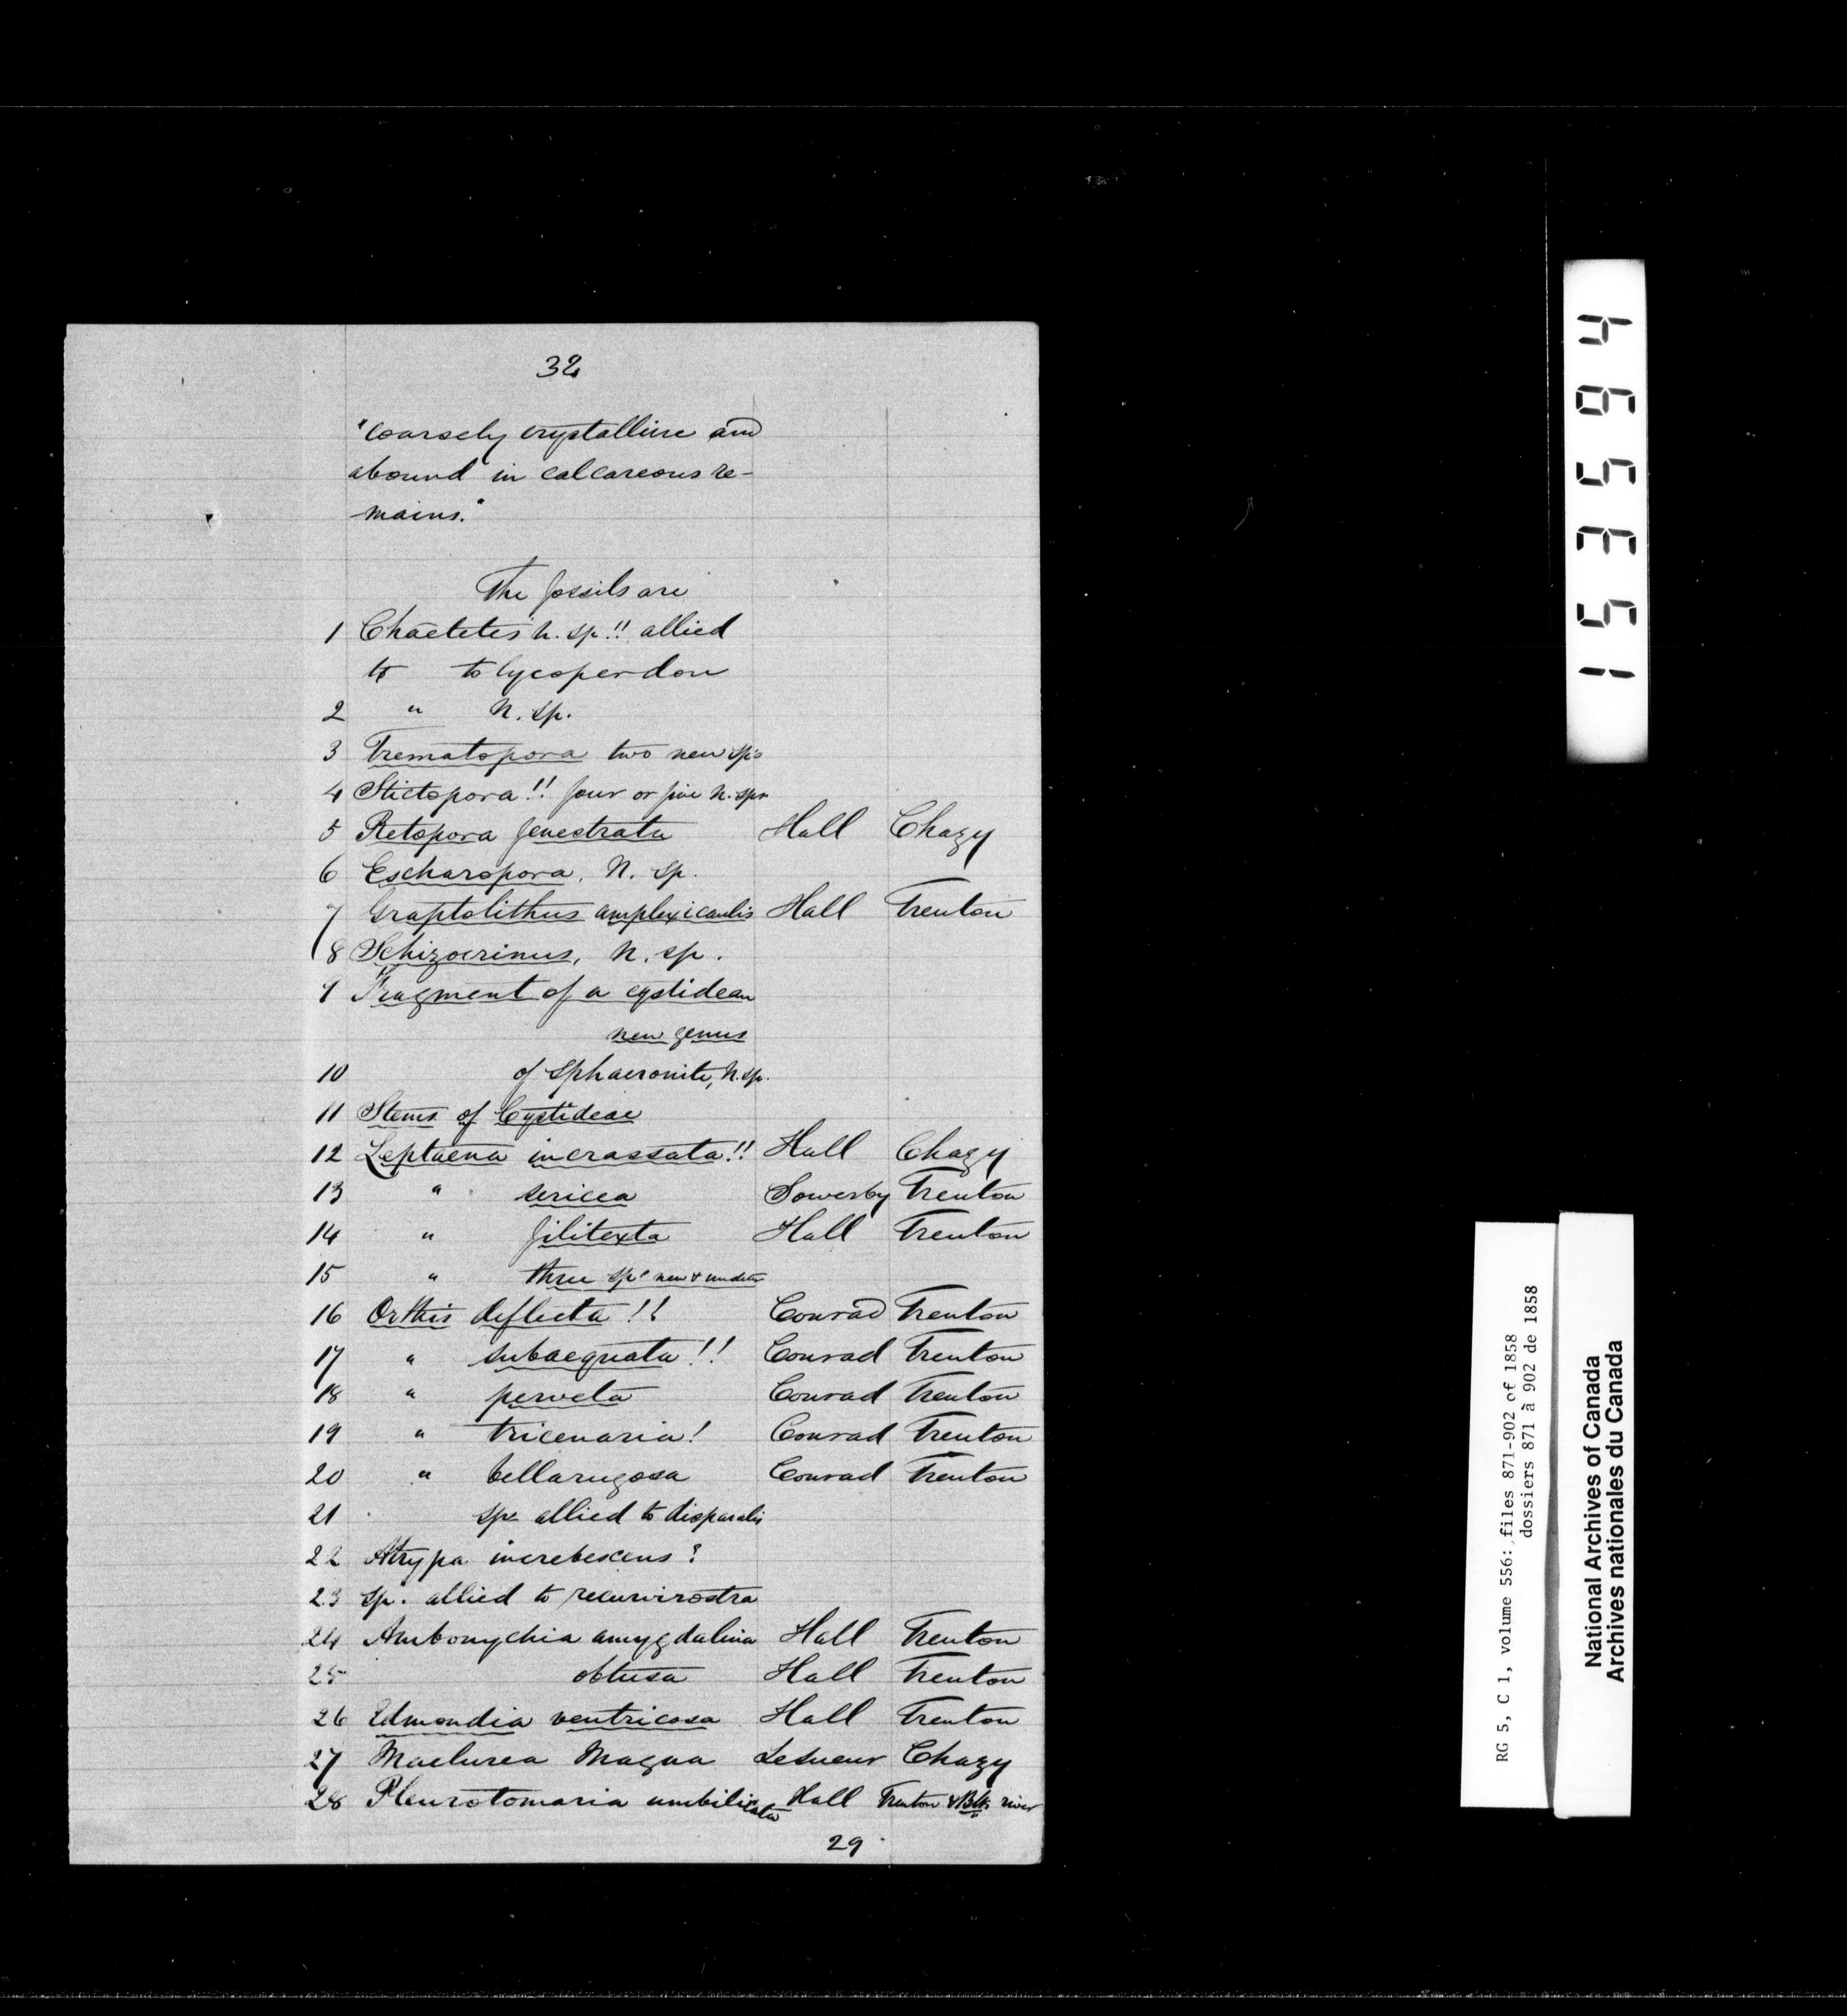 32
"Coarsely crystalline and
abound in calcareous re-
mains."
The fossils are
1 Chaetetes n. sp.!! allied
to to lycoperdon
2 " N. sp.
3 Trematopora two new sps
4 Stictopora!! four or five N. sps
5 Retopora fenestrata Hall Chazy
6 Escharopora, N. sp.
7 Graptolithus amplexicaulis Hall Trenton
8 Schizocrinus, N. sp.
9 Fragment of a cystidean
new genus
10 of Sphaeronite, N. sp.
11 Stems of Cystideae
12 Leptaena incrassata!! Hall Chazy
13 " sericea Sowerby Trenton
14 " filitexta Hall Trenton
15 " three sps new & undetr
16 Orthis deflecta!! Conrad Trenton
17 " subaequata!! Conrad Trenton
18 " perveta Conrad Trenton
19 " tricenaria! Conrad Trenton
20 " bellarugosa Conrad Trenton
21 sp. allied to disparalis
22 Atrypa increbescens?
23 sp. allied to recurvirostra
24 Ambonychia amygdalina Hall Trenton
25 obtusa Hall Trenton
26 Edmondia ventricosa Hall Trenton
27 Maclurea Magna Lesueur Chazy
28 Pleurotomaria umbilicata Hall Trenton & Blk river
29
153594
RG 5, C 1, volume 556: files 871-902 of 1858
dossiers 871 à 902 de 1858
National Archives of Canada
Archives nationales du Canada